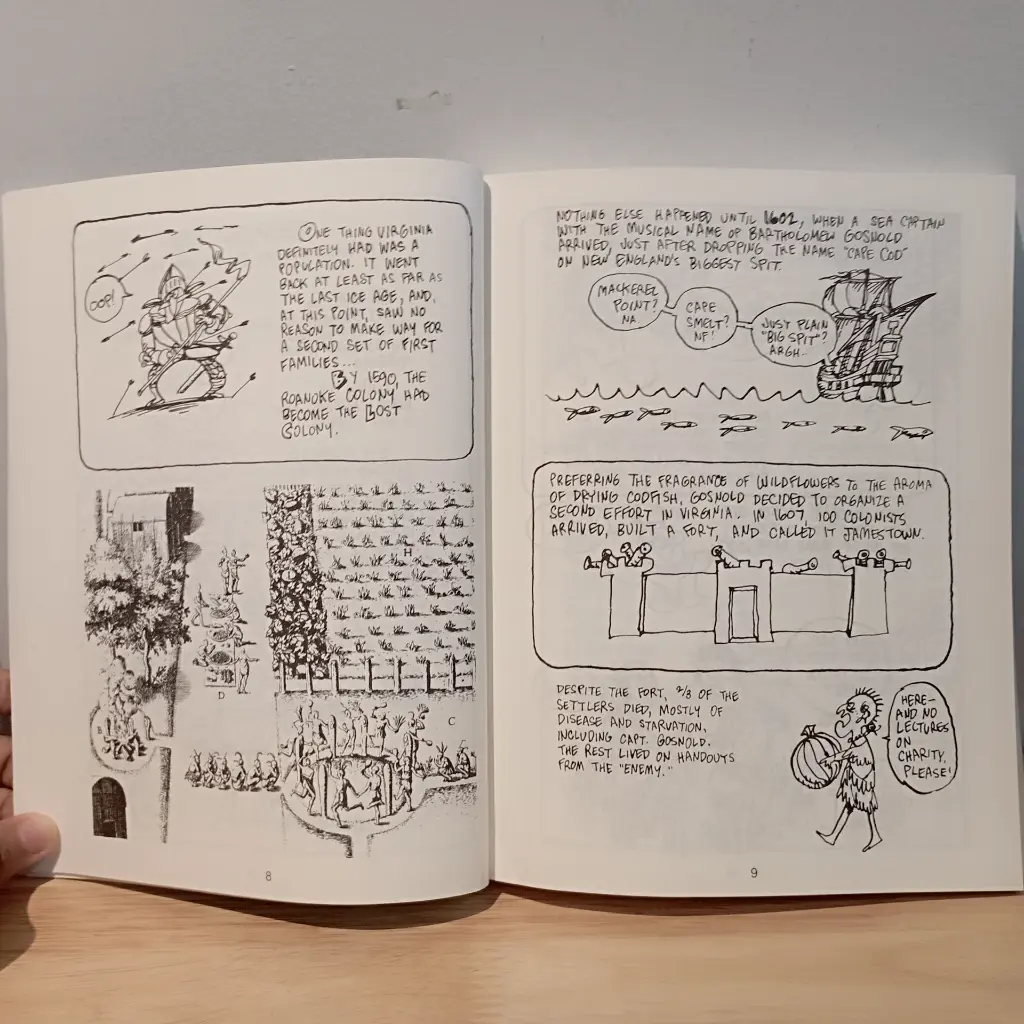 OOP!
ONE THING VIRGINIA
DEFINITELY HAD WAS A
POPULATION. IT WENT
BACK AT LEAST AS FAR AS
THE LAST ICE AGE, AND,
AT THIS POINT, SAW NO
REASON TO MAKE WAY FOR
A SECOND SET OF FIRST
FAMILIES...
BY 1590, THE
ROANOKE COLONY HAD
BECOME THE LOST
COLONY.
H
D
C
8
NOTHING ELSE HAPPENED UNTIL 1602, WHEN A SEA CAPTAIN
WITH THE MUSICAL NAME OF BARTHOLOMEW GOSNOLD
ARRIVED, JUST AFTER DROPPING THE NAME "CAPE COD"
ON NEW ENGLAND'S BIGGEST SPIT.
MACKEREL
POINT?
NA..
CAPE
SMELT?
NF!
JUST PLAIN
"BIG SPIT"?
ARGH..
PREFERRING THE FRAGRANCE OF WILDFLOWERS TO THE AROMA
OF DRYING CODFISH, GOSNOLD DECIDED TO ORGANIZE A
SECOND EFFORT IN VIRGINIA. IN 1607, 100 COLONISTS
ARRIVED, BUILT A FORT, AND CALLED IT JAMESTOWN.
DESPITE THE FORT, 2/3 OF THE
SETTLERS DIED, MOSTLY OF
DISEASE AND STARVATION,
INCLUDING CAPT. GOSNOLD.
THE REST LIVED ON HANDOUTS
FROM THE "ENEMY."
HERE—
AND NO
LECTURES
ON
CHARITY,
PLEASE!
9